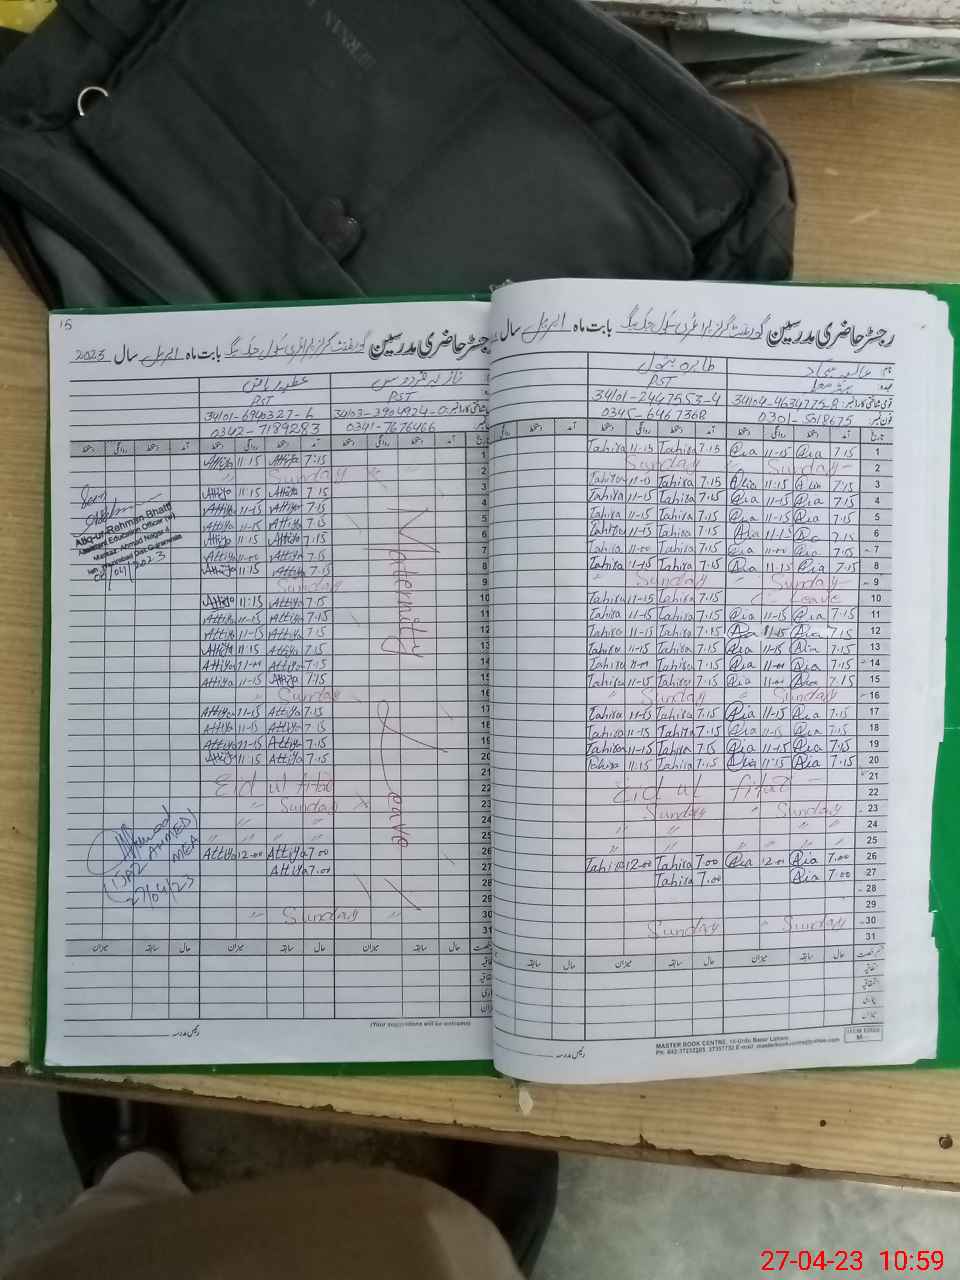 15
رجسٹر حاضری مدرسین گورنمنٹ گرلز پرائمری سکول بابت ماہ اپریل سال 2023
عطیہ ریاض
PST PST
34101-6940327-6 34103-3904924-0
0342-7189283 0341-7676466
Attiya 11:15 Attiya 7:15 1
Sunday 2
Attiya 11.15 Attiya 7.15 3
Attiya 11-15 Attiya 7.15 4
Attiya 11-15 Attiya 7.15 5
Attiya 11.15 Attiya 7.15 6
Attiya 11-00 Attiya 7.15 7
Attiya 11.15 Attiya 7.15 8
Sunday 9
Attiya 11:15 Attiya 7.15 10
Attiya 11-15 Attiya 7.15 11
Attiya 11-15 Attiya 7.15 12
Attiya 11.15 Attiya 7.15 13
Attiya 11-00 Attiya 7.15 14
Attiya 11-15 Attiya 7.15 15
Sunday 16
Attiya 11-15 Attiya 7.15 17
Attiya 11-15 Attiya 7.15 18
Attiya 11-15 Attiya 7.15 19
Attiya 11.15 Attiya 7.15 20
Eid ul fitar 21
22
Sunday 23
〃 〃 24
〃 〃 25
Attiya 12-00 Attiya 7.00 26
Attiya 7.00 27
28
29
〃 Sunday 30
31
Maternity Leave
Atiq-ur-Rehman Bhatti
Assistant Education Officer (W)
Markaz Ahmad Nagar
04/2023
AHMED)
MEA
27/04/23
میزان سابقہ حال میزان سابقہ حال میزان سابقہ حال
رئیس مدرسہ
(Your suggestions will be welcome)
رجسٹر حاضری مدرسین گورنمنٹ گرلز پرائمری سکول بابت ماہ اپریل سال
طاہرہ بتول
PST
34101-2467553-4 34104-4634775-8
0345-6467368 0301-5018675
Tahira 11-15 Tahira 7.15 Alia 11-15 Alia 7.15 1
Sunday 〃 Sunday 2
Tahira 11-15 Tahira 7.15 Alia 11.15 Alia 7.15 3
Tahira 11-15 Tahira 7.15 Alia 11-15 Alia 7.15 4
Tahira 11-15 Tahira 7.15 Alia 11-15 Alia 7.15 5
Tahira 11-15 Tahira 7.15 Alia 11-15 Alia 7.15 6
Tahira 11-00 Tahira 7.15 Alia 11-00 Alia 7.15 7
Tahira 11-15 Tahira 7.15 Alia 11-15 Alia 7.15 8
Sunday 〃 Sunday 9
Tahira 11-15 Tahira 7.15 Leave 10
Tahira 11-15 Tahira 7.15 Alia 11-15 Alia 7.15 11
Tahira 11-15 Tahira 7.15 Alia 11-15 Alia 7.15 12
Tahira 11-15 Tahira 7.15 Alia 11-15 Alia 7.15 13
Tahira 11-00 Tahira 7.15 Alia 11-00 Alia 7.15 14
Tahira 11-15 Tahira 7.15 Alia 11-00 Alia 7.15 15
〃 Sunday 〃 Sunday 16
Tahira 11-15 Tahira 7.15 Alia 11-15 Alia 7.15 17
Tahira 11-15 Tahira 7.15 Alia 11-15 Alia 7.15 18
Tahira 11-15 Tahira 7.15 Alia 11-15 Alia 7.15 19
Tahira 11.15 Tahira 7.15 Alia 11:15 Alia 7.15 20
Eid ul fitar 21
22
Sunday 〃 Sunday 23
〃 〃 〃 〃 24
〃 〃 25
Tahira 12-00 Tahira 7.00 Alia 12.00 Alia 7.00 26
Tahira 7.00 Alia 7.00 27
28
29
Sunday 〃 Sunday 30
31
میزان سابقہ حال میزان سابقہ حال
رئیس مدرسہ
MASTER BOOK CENTRE, 10-Urdu Bazar Lahore
27-04-23 10:59